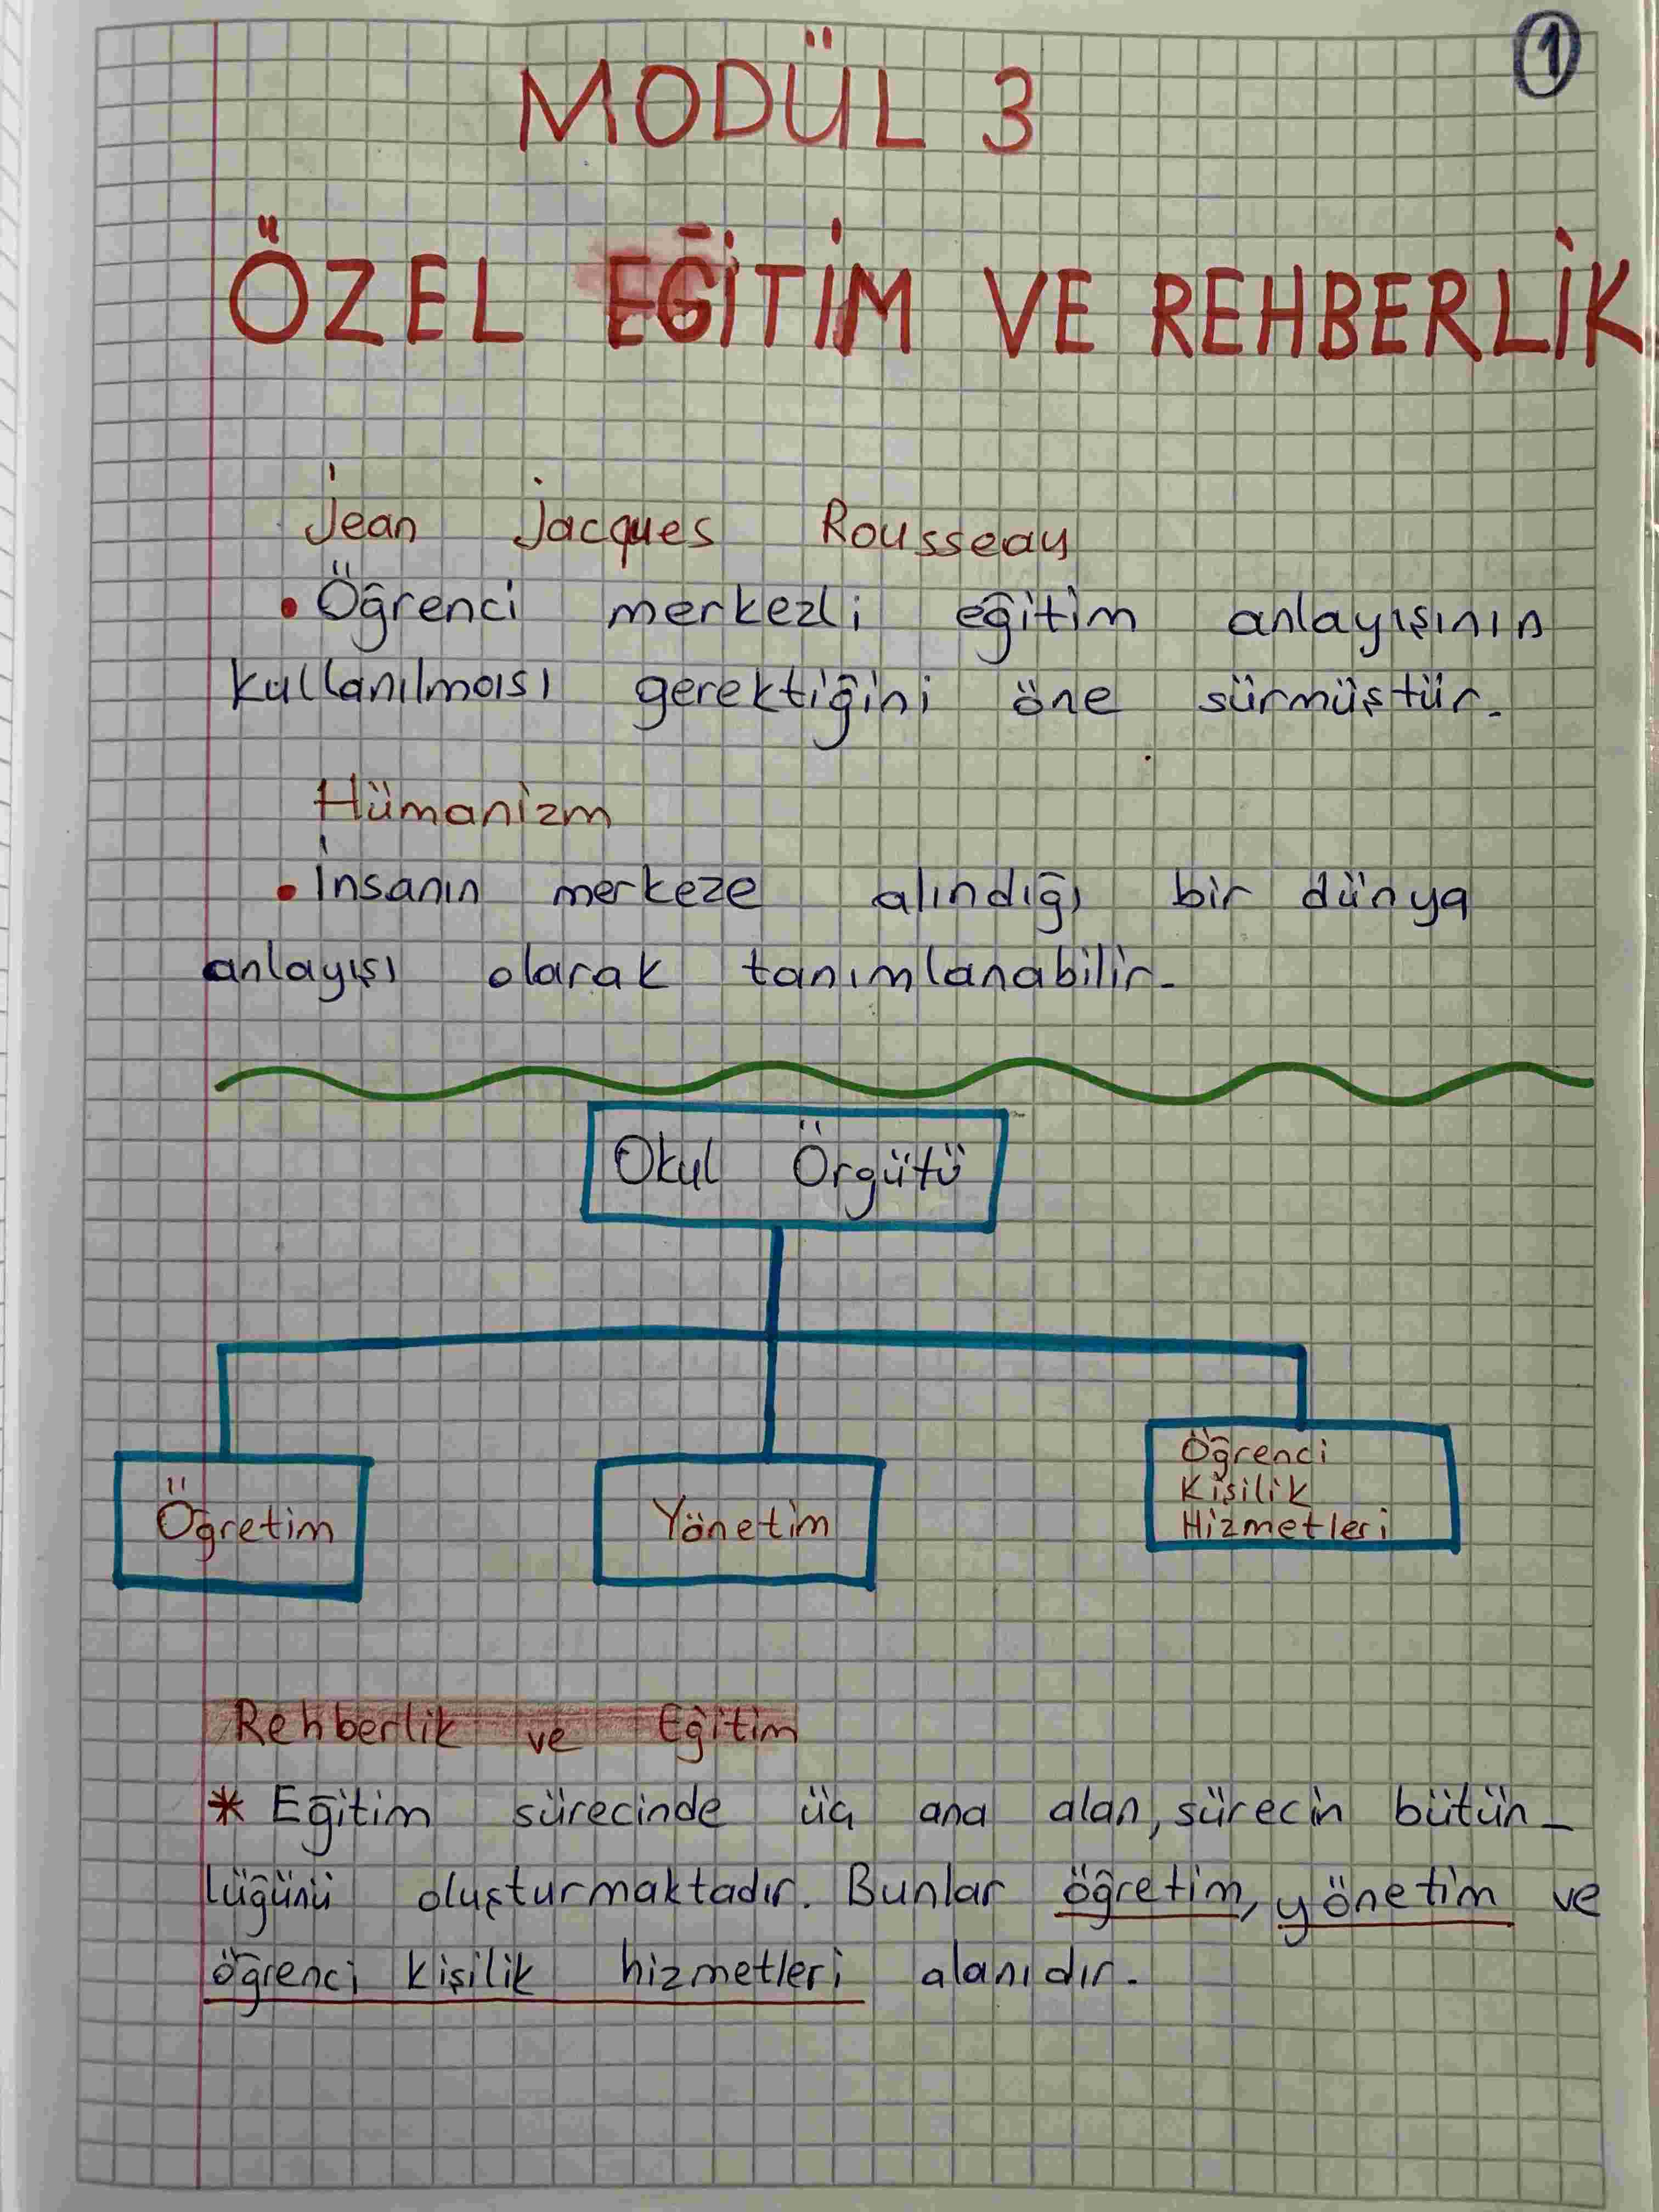 1
MODÜL 3
ÖZEL EĞİTİM VE REHBERLİK
Jean Jacques Rousseau
• Öğrenci merkezli eğitim anlayışının
kullanılması gerektiğini öne sürmüştür.
Hümanizm
• İnsanın merkeze alındığı bir dünya
anlayışı olarak tanımlanabilir.
Okul Örgütü
Öğretim
Yönetim
Öğrenci
Kişilik
Hizmetleri
Rehberlik ve Eğitim
* Eğitim sürecinde üç ana alan, sürecin bütün-
lüğünü oluşturmaktadır. Bunlar öğretim, yönetim ve
öğrenci kişilik hizmetleri alanıdır.